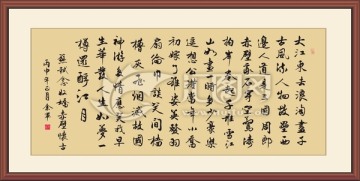 大江東去浪淘盡千
古風流人物故壘西
邊人道是三國周郎
赤壁亂石穿空驚濤
拍岸卷起千堆雪江
山如畫一時多少豪傑
遙想公瑾當年小喬
初嫁了雄姿英發羽
扇綸巾談笑間檣
櫓灰飛煙滅故國
神游多情應笑我早
生華髮人生如夢一
樽還酹江月
蘇軾念奴嬌赤壁懷古
丙申年正月金軍